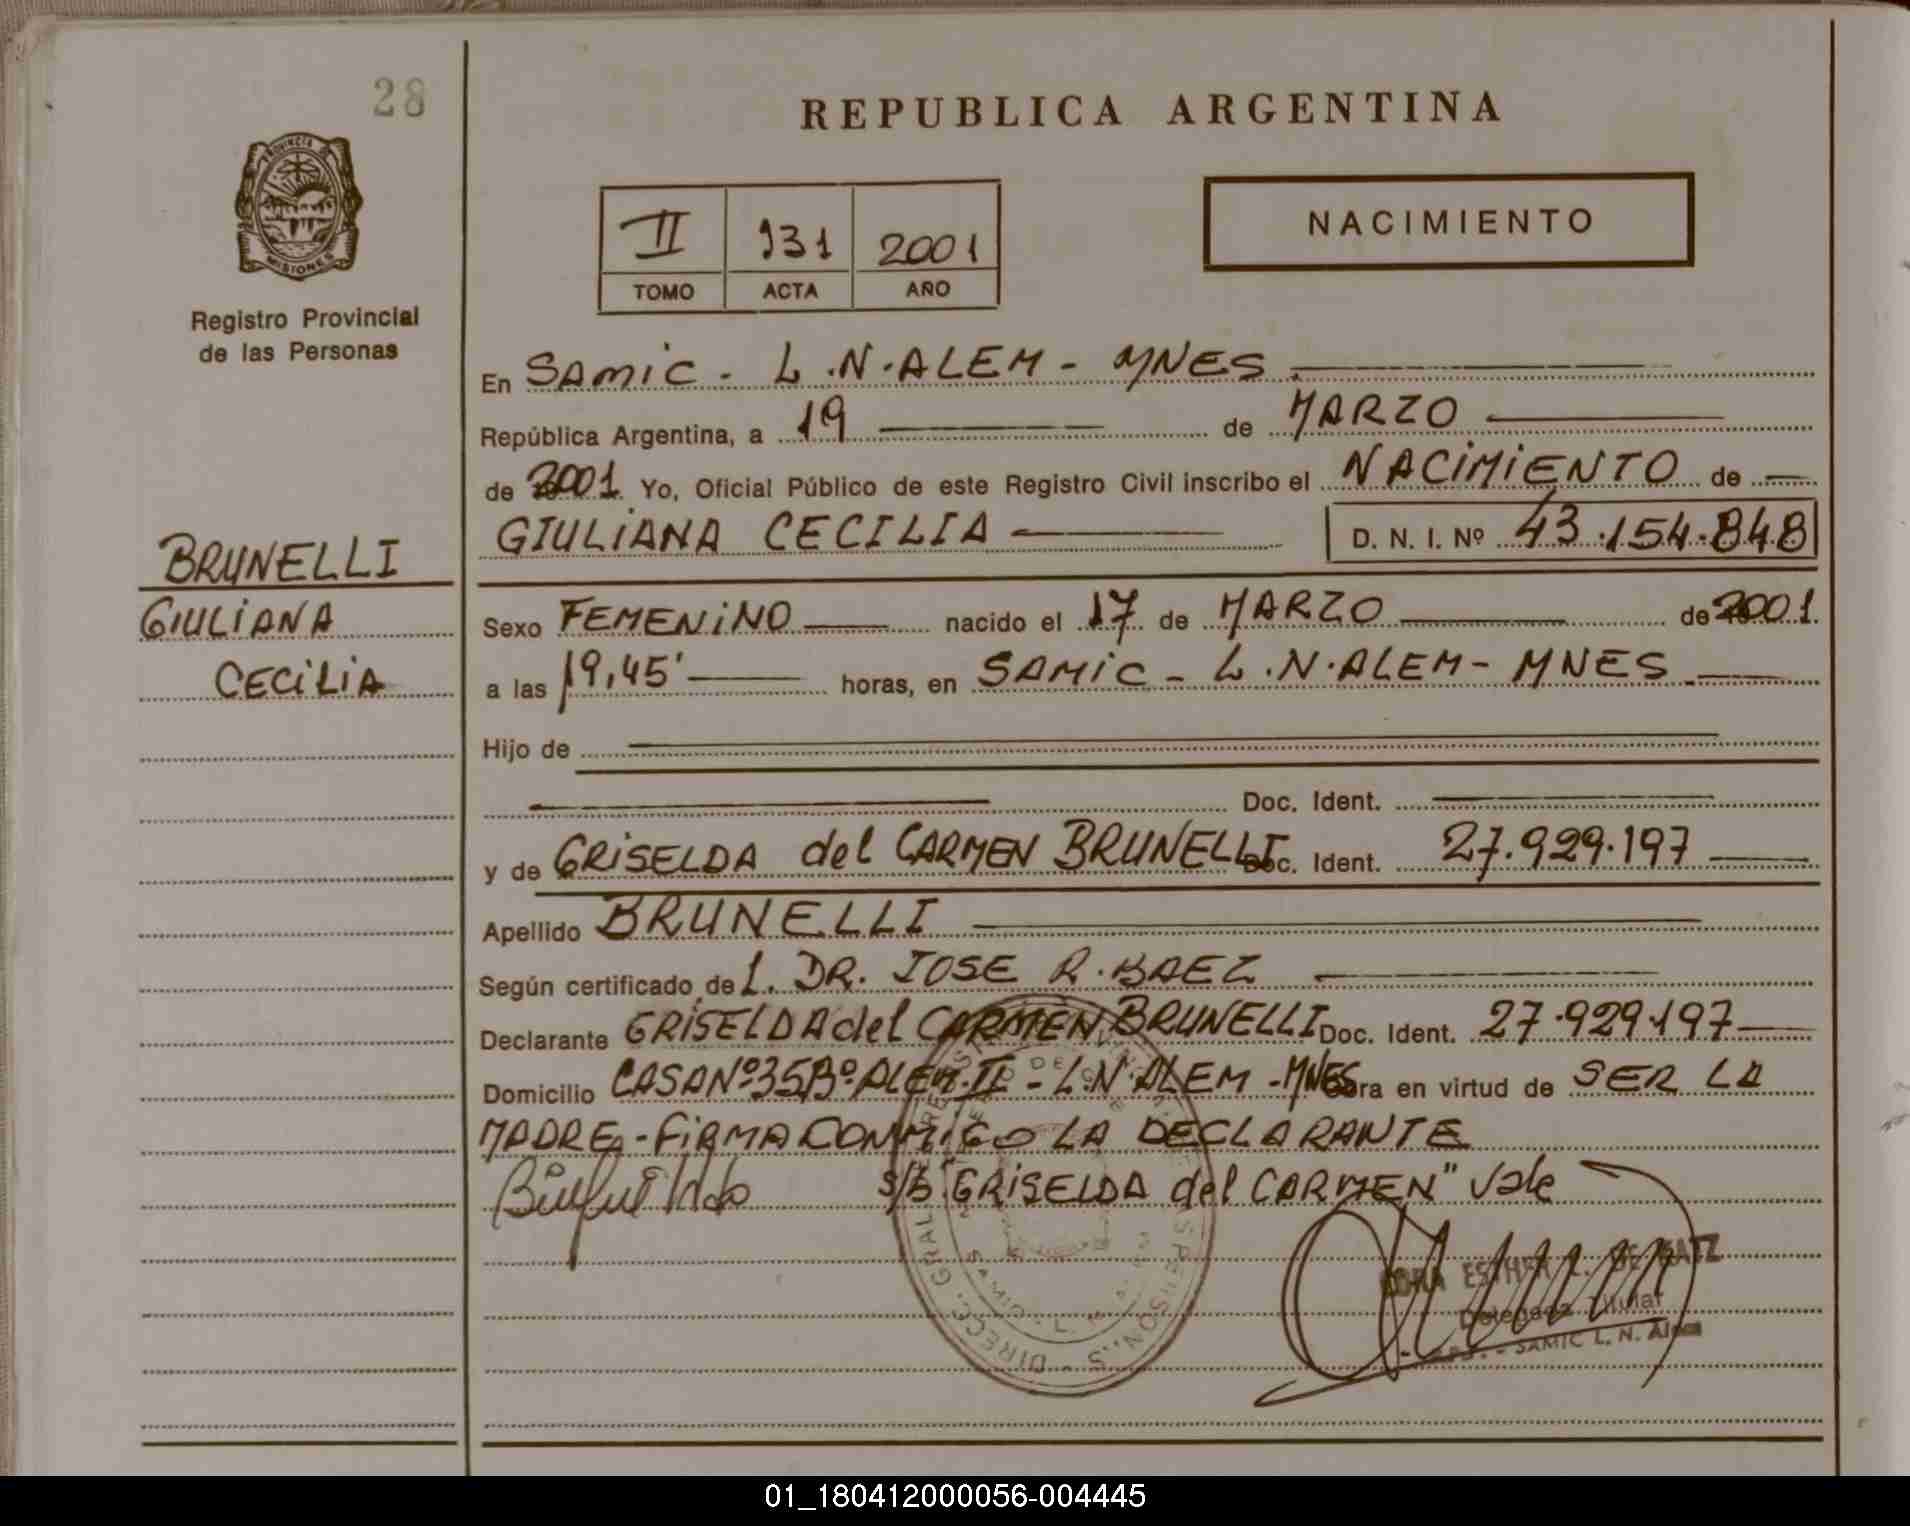 28
REPUBLICA ARGENTINA
PROVINCIA DE
MISIONES
Registro Provincial
de las Personas
II 931 2001
TOMO ACTA AÑO
NACIMIENTO
En SAMIC - L.N.ALEM - MNES.
República Argentina, a 19 de MARZO
de 2001 Yo, Oficial Público de este Registro Civil inscribo el NACIMIENTO de
GIULIANA CECILIA D. N. I. Nº 43.154.848
BRUNELLI
GIULIANA
CECILIA
Sexo FEMENINO nacido el 17 de MARZO de 2001.
a las 19,45' horas, en SAMIC - L.N.ALEM - MNES.
Hijo de
Doc. Ident.
y de GRISELDA del CARMEN BRUNELLI Doc. Ident. 27.929.197
Apellido BRUNELLI
Según certificado de 1. DR. JOSE R. BAEZ
Declarante GRISELDA del CARMEN BRUNELLI Doc. Ident. 27.929.197
Domicilio CASA Nº35 Bº ALEM II - L.N.ALEM - MNES Obra en virtud de SER LA
MADRE - FIRMA CONMIGO LA DECLARANTE
s/b "GRISELDA del CARMEN" Vale
ESTHER L. DE KATZ
Delegada Titular
SAMIC L. N. Alem
DIRECC. GRAL.
01_180412000056-004445